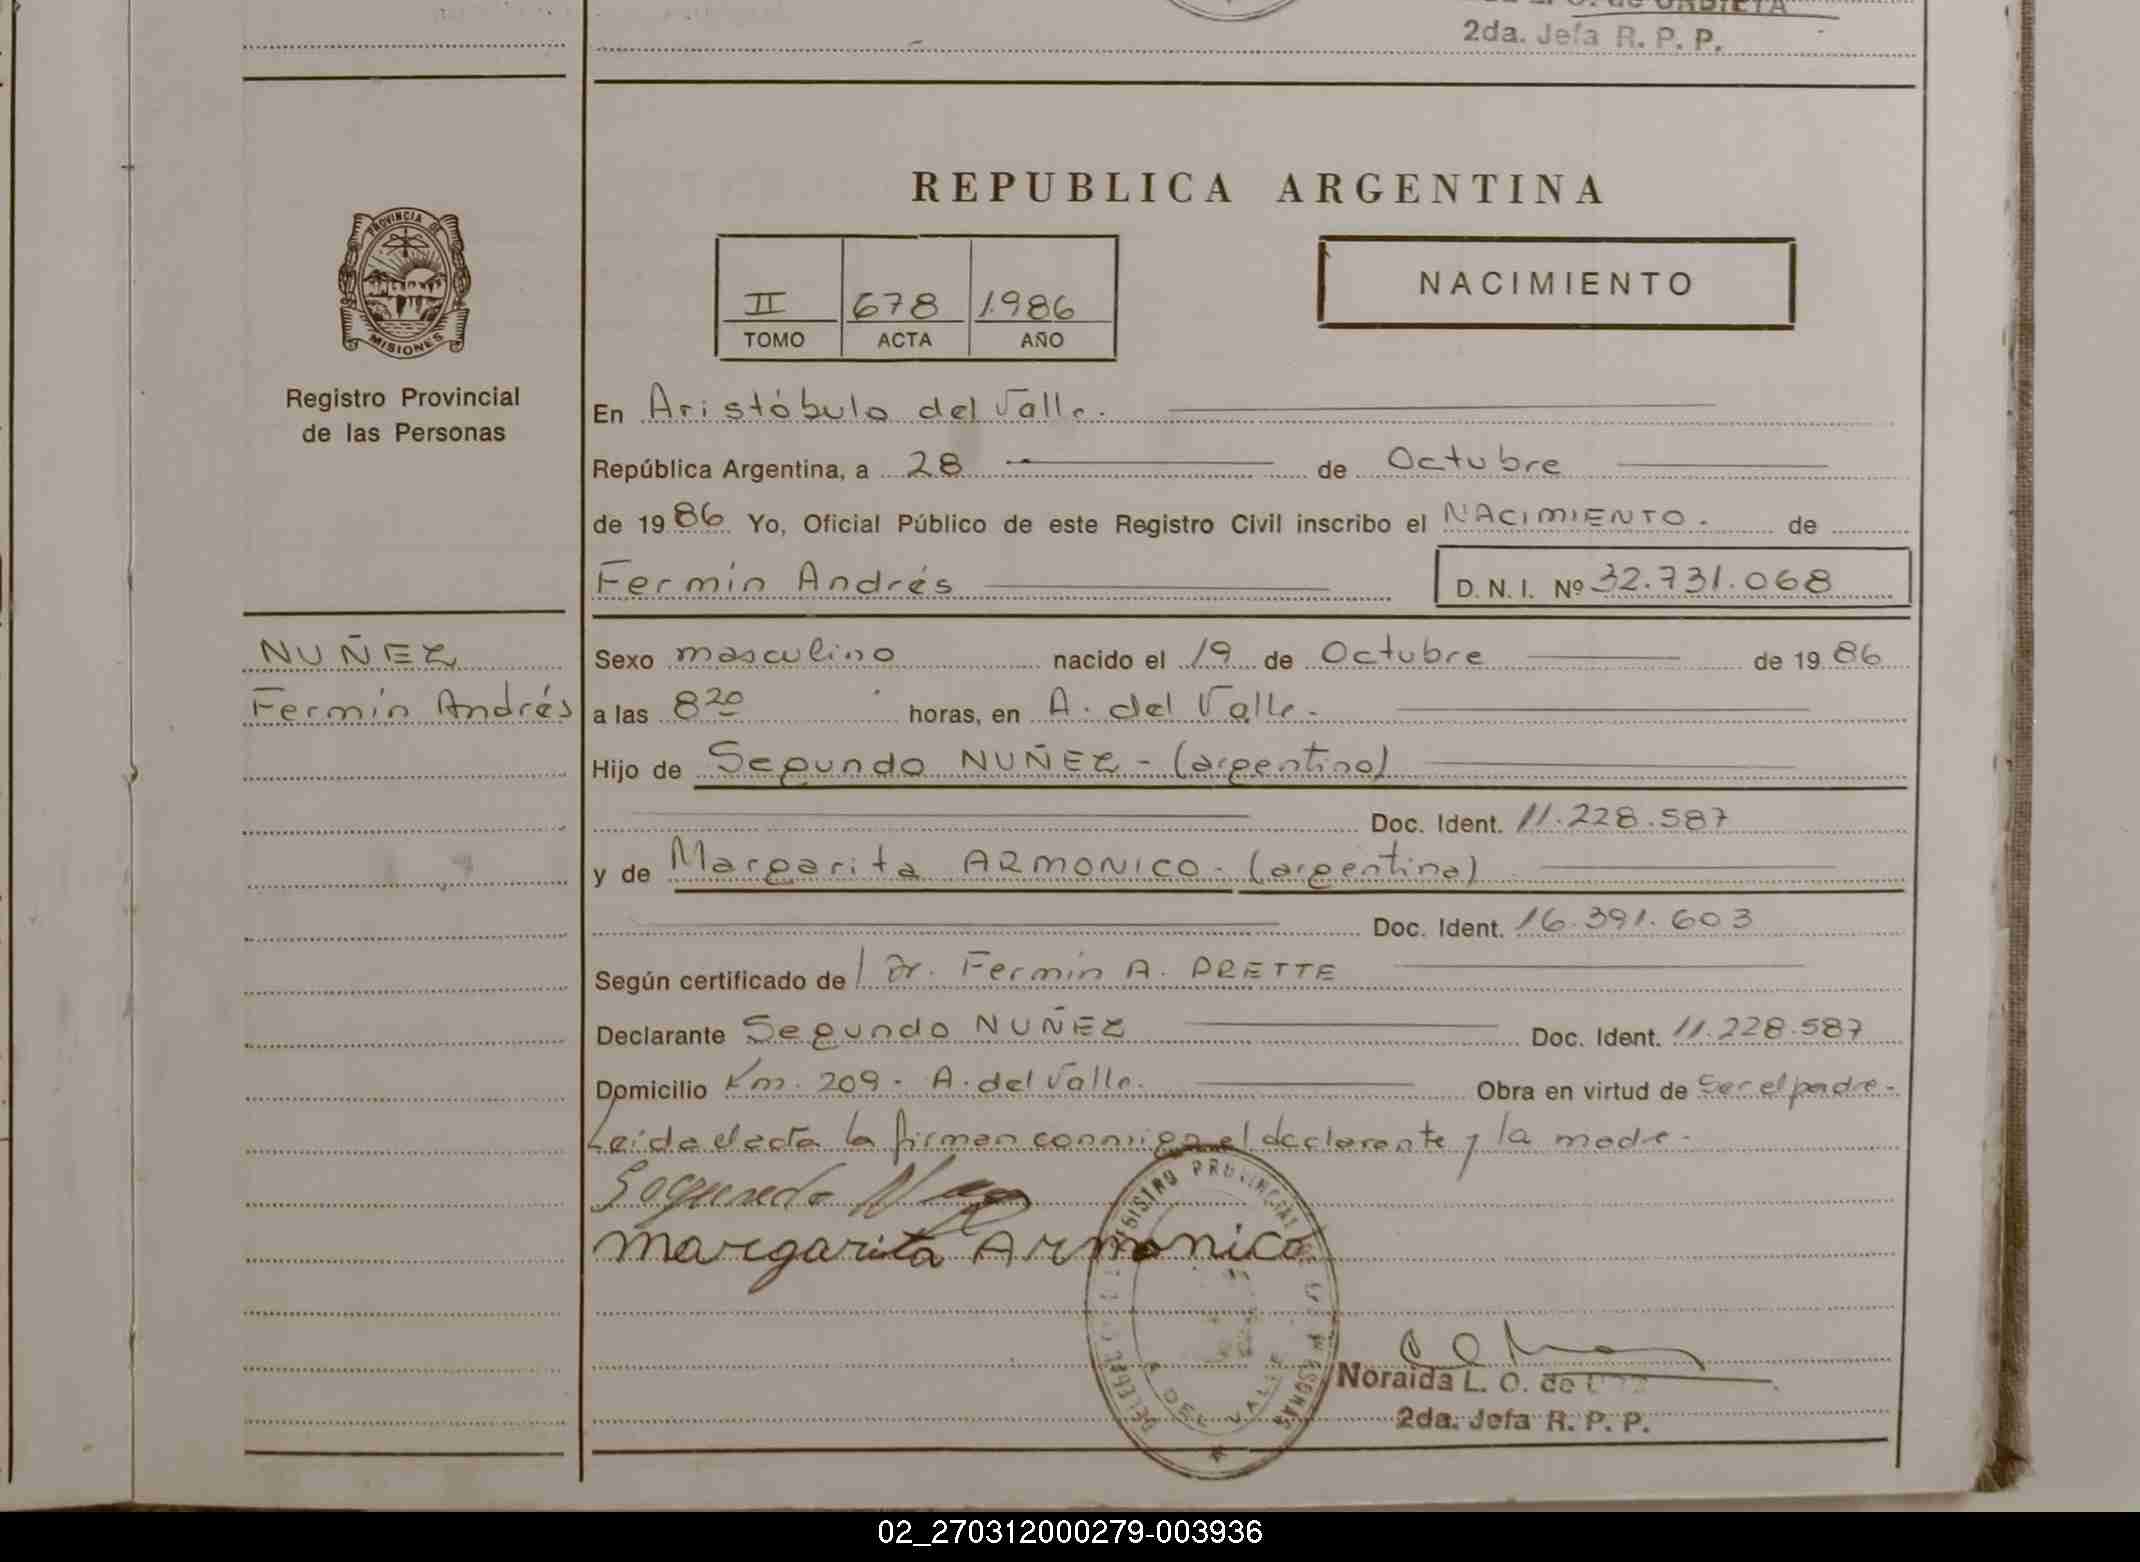 2da. Jefa R. P. P.
REPUBLICA ARGENTINA
PROVINCIA DE
MISIONES
Registro Provincial
de las Personas
II 678 1986
TOMO ACTA AÑO
NACIMIENTO
En Aristóbulo del Valle.
República Argentina, a 28 de Octubre
de 1986 Yo, Oficial Público de este Registro Civil inscribo el NACIMIENTO. de
Fermín Andrés D. N. I. Nº 32.731.068
NUÑEZ
Fermín Andrés
Sexo masculino nacido el 19 de Octubre de 1986
a las 8 20 horas, en A. del Valle.
Hijo de Segundo NUÑEZ - (argentino)
Doc. Ident. 11.228.587
y de Margarita ARMONICO - (argentina)
Doc. Ident. 16.391.603
Según certificado de Dr. Fermín A. PRETTE
Declarante Segundo NUÑEZ Doc. Ident. 11.228.587
Domicilio Km. 209 - A. del Valle. Obra en virtud de Ser el padre.
Leída el acta la firman conmigo el declarante y la madre.
Segundo
Margarita Armonico
REGISTRO PROVINCIAL DE LAS PERSONAS
A. DEL VALLE
Noraida L. O. de
2da. Jefa R. P. P.
02_270312000279-003936